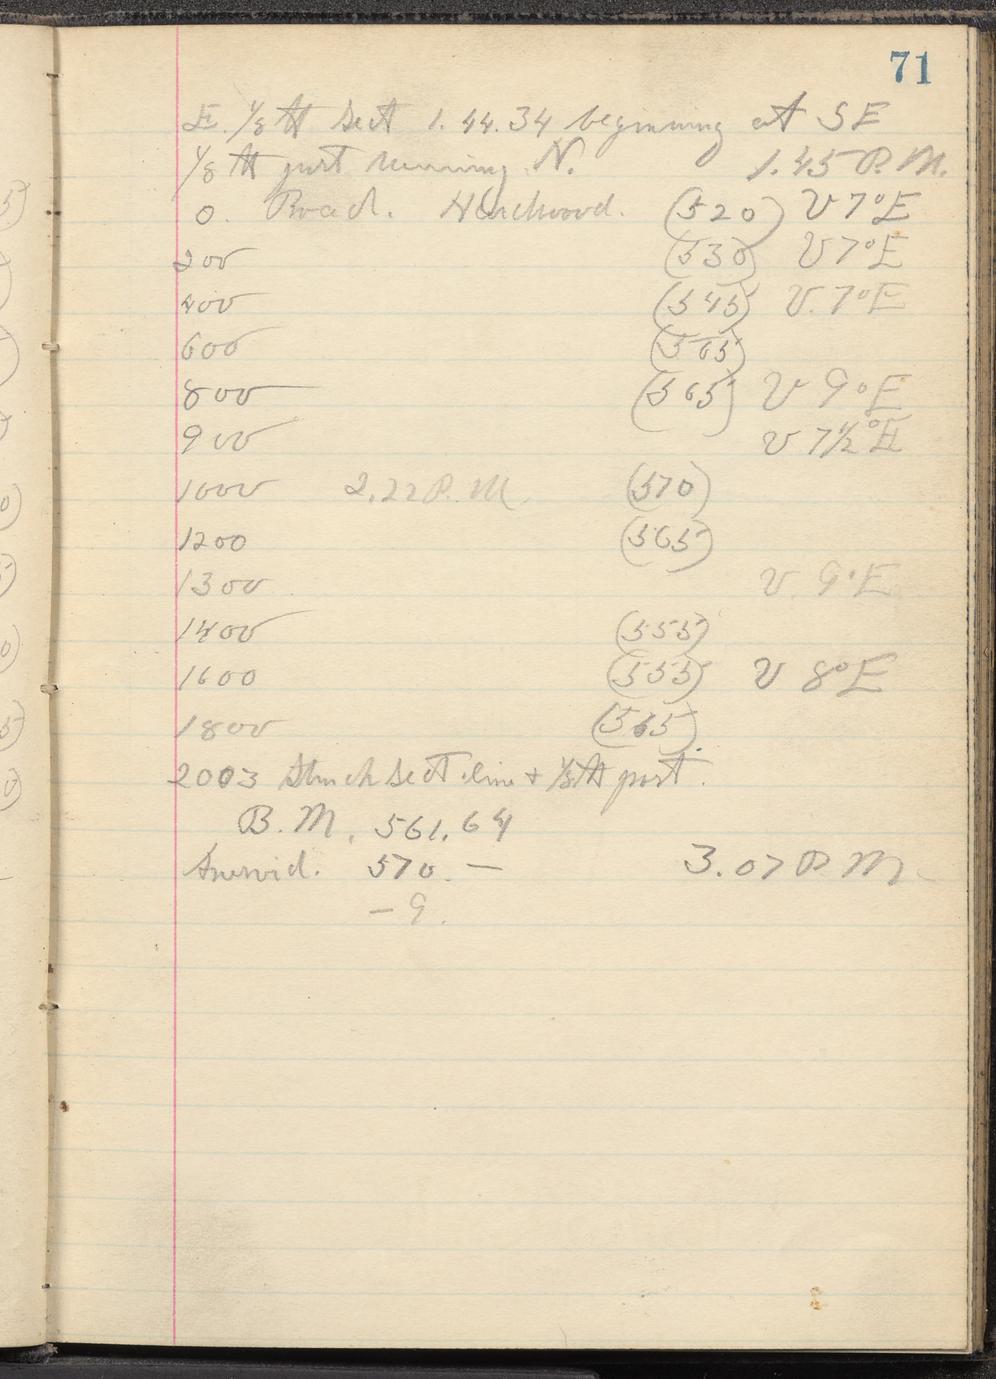 71
E. 1/8 th Sect 1.44.34 beginning at SE
1/8 th post running N. 1.45 P.M.
0. Road. Hardwood. (520) V 7°E
200 (530) V 7°E
400 (545) V. 7°E
600 (565)
800 (565) V 9°E
900 V 7 1/2°E
1000 2.22 P.M. (570)
1200 (565)
1300 V. 9°E
1400 (555)
1600 (555) V 8°E
1800 (565)
2003 Struck Sect line + 1/8th post.
B.M. 561.64
Aneroid. 570. — 3.07 P M
— 9.